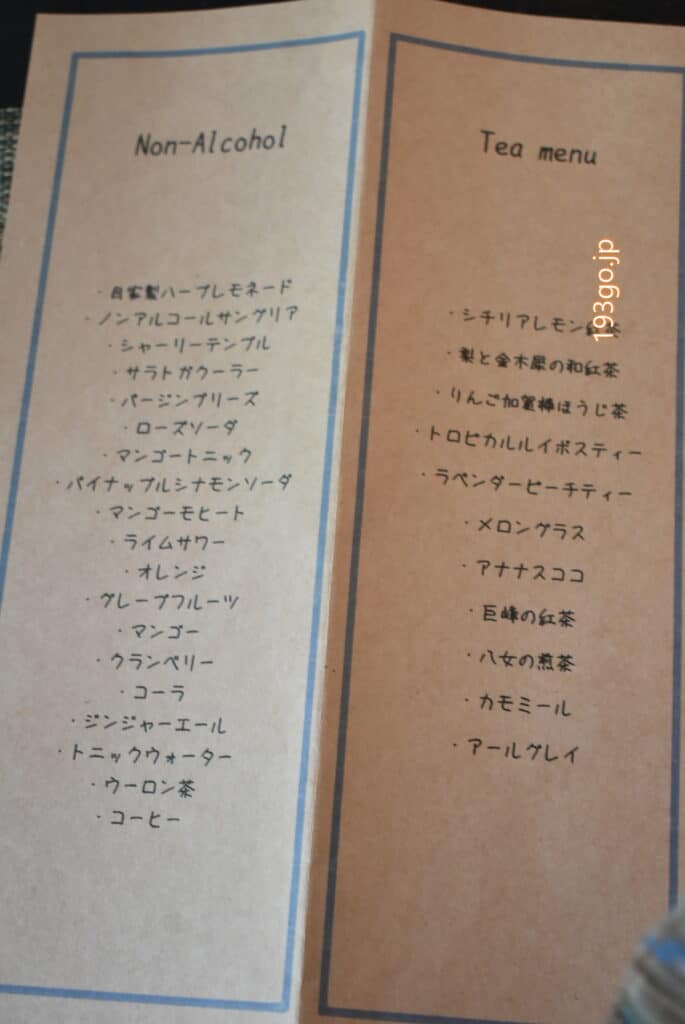 Non-Alcohol
・自家製ハーブレモネード
・ノンアルコールサングリア
・シャーリーテンプル
・サラトガクーラー
・バージンブリーズ
・ローズソーダ
・マンゴートニック
・パイナップルシナモンソーダ
・マンゴーモヒート
・ライムサワー
・オレンジ
・グレープフルーツ
・マンゴー
・クランベリー
・コーラ
・ジンジャーエール
・トニックウォーター
・ウーロン茶
・コーヒー
Tea menu
・シチリアレモン紅茶
・梨と金木犀の和紅茶
・りんご加賀棒ほうじ茶
・トロピカルルイボスティー
・ラベンダーピーチティー
・メロングラス
・アナナスココ
・巨峰の紅茶
・八女の煎茶
・カモミール
・アールグレイ
193go.jp